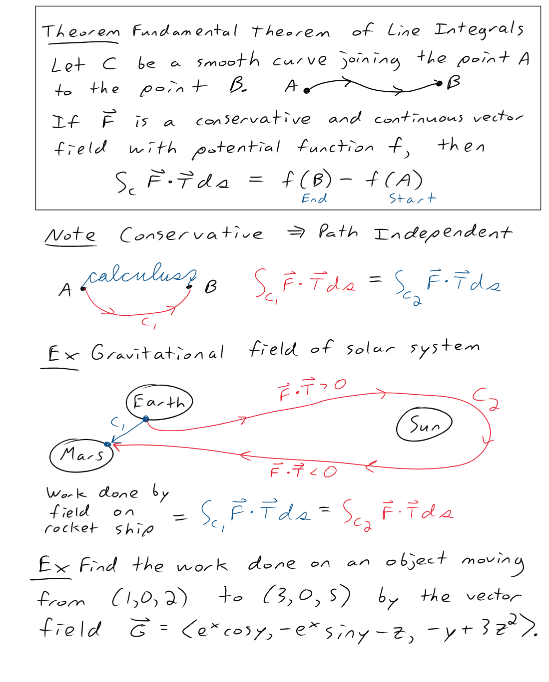 Theorem Fundamental Theorem of Line Integrals
Let C be a smooth curve joining the point A
to the point B. A B
If F⃗ is a conservative and continuous vector
field with potential function f, then
∫_C F⃗·T⃗ ds = f(B) - f(A)
End Start
Note Conservative ⇒ Path Independent
A calculus2 B ∫_C₁ F⃗·T⃗ ds = ∫_C₂ F⃗·T⃗ ds
C₁
Ex Gravitational field of solar system
Earth F⃗·T⃗ > 0 C₂
C₁ Sun
Mars F⃗·T⃗ < 0
Work done by
field on
rocket ship = ∫_C₁ F⃗·T⃗ ds = ∫_C₂ F⃗·T⃗ ds
Ex Find the work done on an object moving
from (1,0,2) to (3,0,5) by the vector
field G⃗ = ⟨e^x cosy, -e^x siny - z, -y + 3z²⟩.